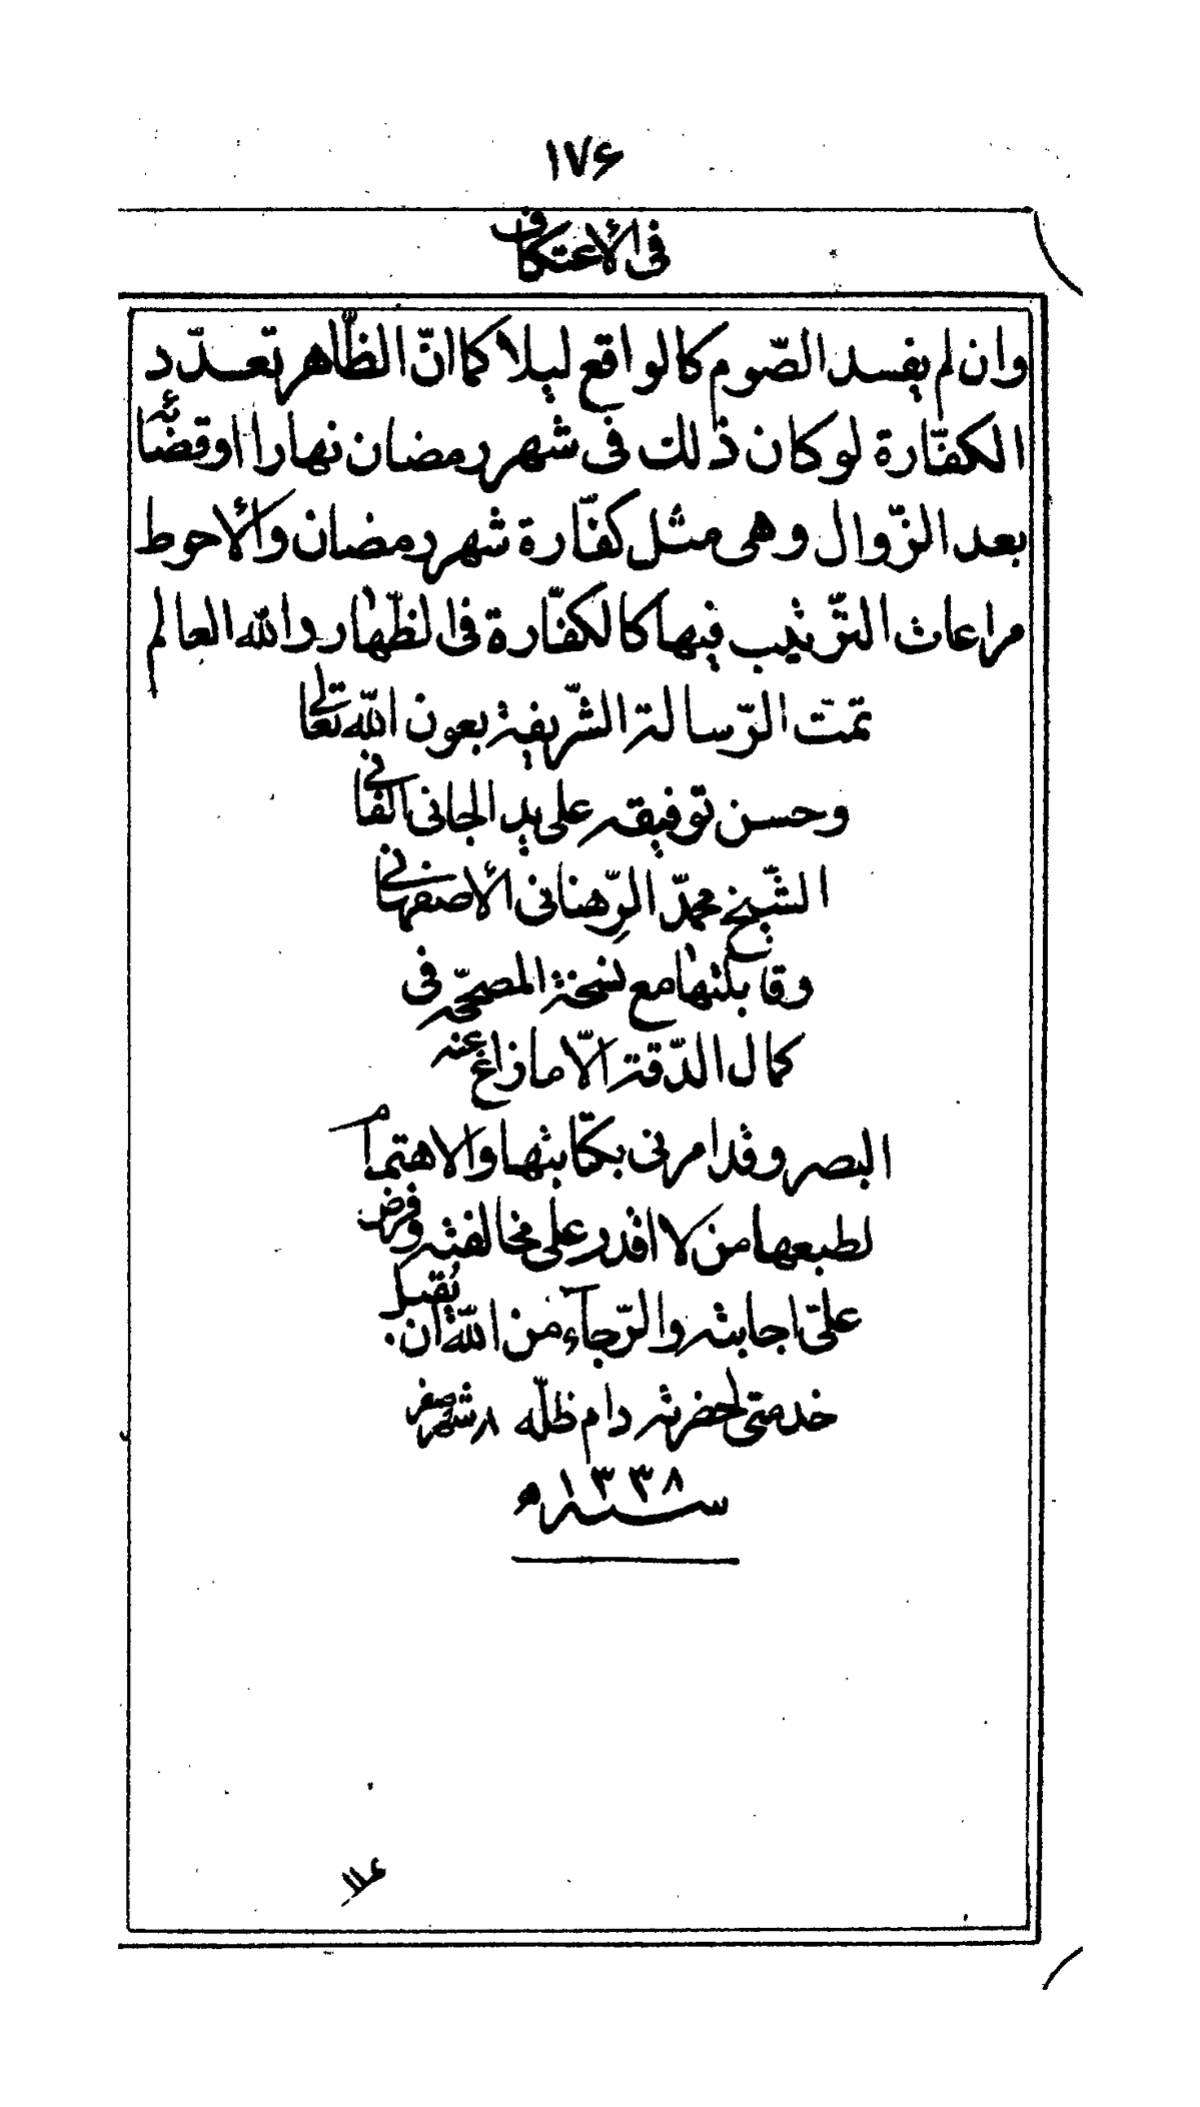 ١٧۶
فى الأعتكاف
وان لم يفسد الصّوم كالواقع ليلا كما انّ الظّاهر تعدّد
الكفّارة لو كان ذلك فى شهر رمضان نهارا او قضائه
بعد الزّوال وهى مثل كفّارة شهر رمضان والأحوط
مراعات التّرتيب فيها كالكفّارة فى الظّهار والله العالم
تمّت الرّسالة الشّريفة بعون اللّه تعالى
وحسن توفيقه على يد الجانى الفانى
الشّيخ محمّد الرّهنانى الأصفهانى
وقابلتها مع نسخة المصحّحه فى
كمال الدّقة الّا ما زاغ عنه
البصر وقد امرنى بكتابتها والاهتمام
لطبعها من لا اقدر على مخالفته وفرض
علىّ اجابته والرّجآء من اللّه ان يقبل
خدمتى لحضرته دام ظلّه ٨ شهر صفر
سنه ١٣٣٨ه